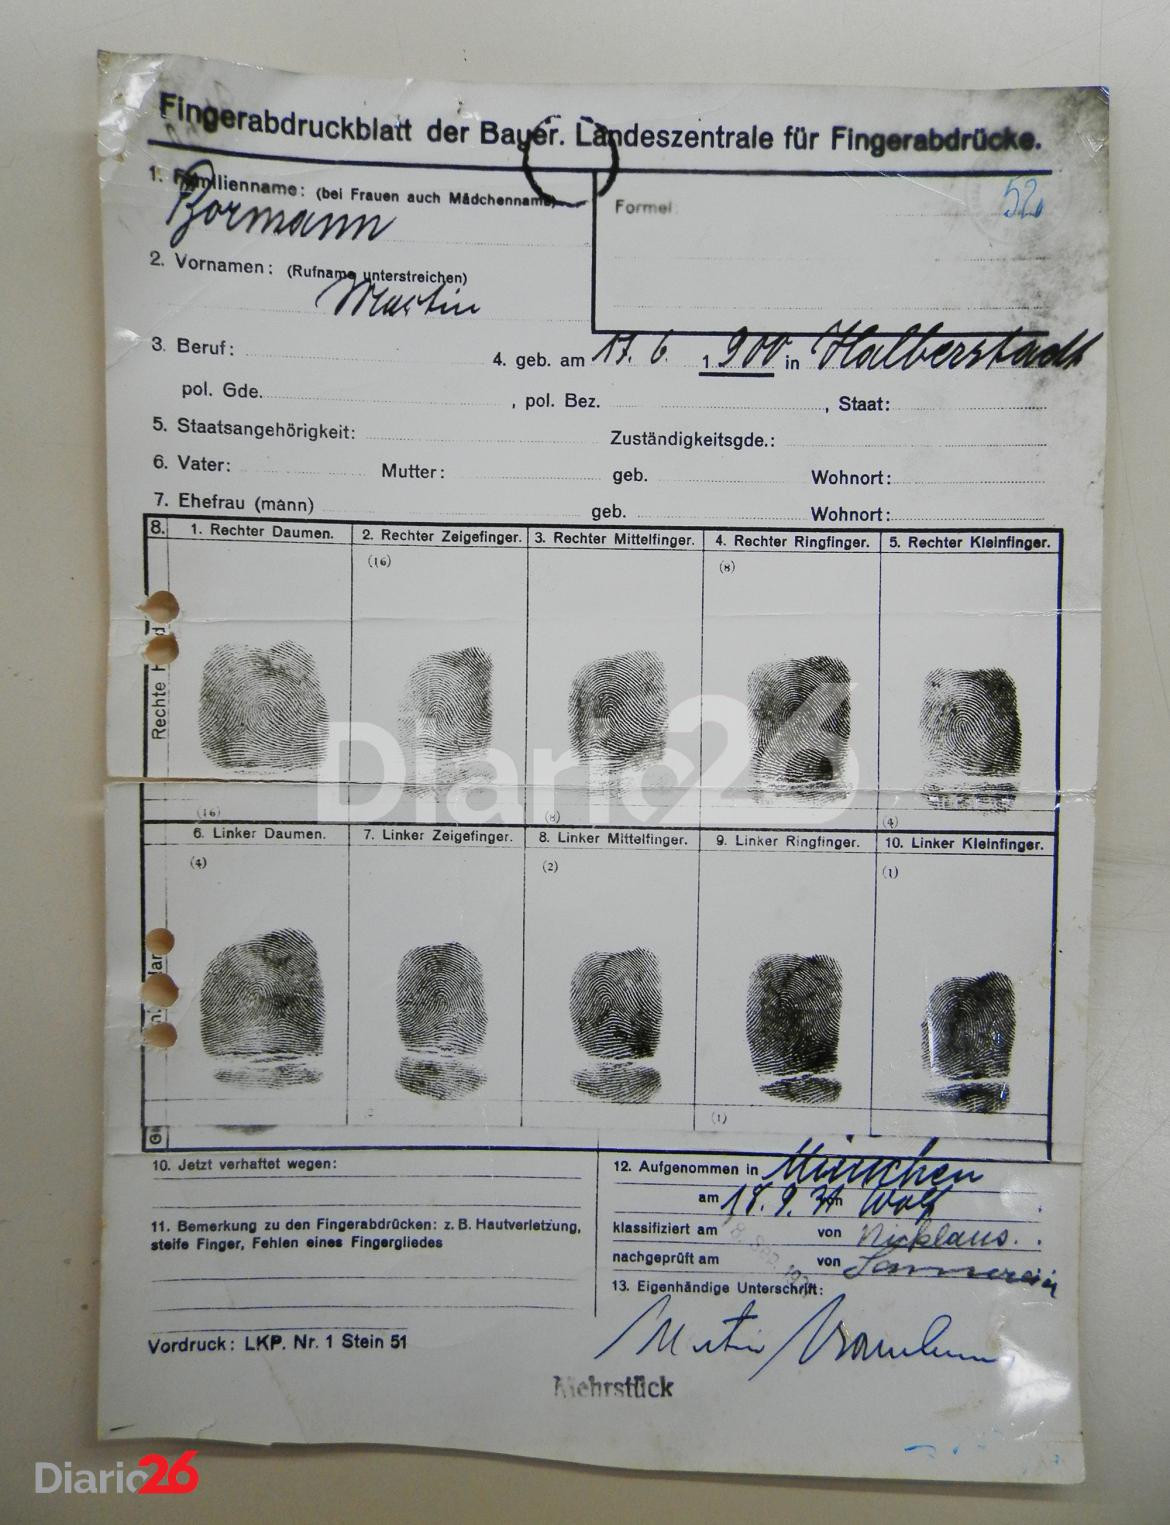 Fingerabdruckblatt der Bayer. Landeszentrale für Fingerabdrücke.
1. Familienname: (bei Frauen auch Mädchenname)
Bormann
Formel
52
2. Vornamen: (Rufname unterstreichen)
Martin
3. Beruf: 4. geb. am 17. 6. 1 900 in Halberstadt
pol. Gde. , pol. Bez. , Staat:
5. Staatsangehörigkeit: Zuständigkeitsgde.:
6. Vater: Mutter: geb. Wohnort:
7. Ehefrau (mann) geb. Wohnort:
8. 1. Rechter Daumen. 2. Rechter Zeigefinger. 3. Rechter Mittelfinger. 4. Rechter Ringfinger. 5. Rechter Kleinfinger.
(16) (8)
Rechte
Diario26
(16) (8) (4)
6. Linker Daumen. 7. Linker Zeigefinger. 8. Linker Mittelfinger. 9. Linker Ringfinger. 10. Linker Kleinfinger.
(4) (2) (1)
(1)
10. Jetzt verhaftet wegen:
11. Bemerkung zu den Fingerabdrücken: z. B. Hautverletzung,
steife Finger, Fehlen eines Fingergliedes
12. Aufgenommen in München
am 18. 9. 31 von Wolf
klassifiziert am von Nicklaus.
nachgeprüft am von
13. Eigenhändige Unterschrift:
Martin Bormann
Vordruck: LKP. Nr. 1 Stein 51
Mehrstück
Diario26